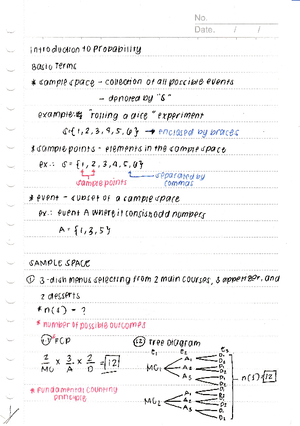 No.
Date. / /
introduction to Probability
Basic Terms
* sample space - collection of all possible events
- denoted by "S"
example: "rolling a dice" experiment
S = {1, 2, 3, 4, 5, 6} → enclosed by braces
* sample points - elements in the sample space
ex.: S = {1, 2, 3, 4, 5, 6}
sample points
separated by commas
* event - subset of a sample space
ex.: event A where it consists odd numbers
A = {1, 3, 5}
SAMPLE SPACE
① 3-dish menus selecting from 2 main courses, 3 appetizer, and
2 desserts
* n(s) = ?
* number of possible outcomes
FCP
2 × 3 × 2 = 12
MC A D
* Fundamental counting
principle
Tree Diagram
C₁ C₂ C₃
MC₁ A₁ A₂ A₃ D₁ D₂ D₁ D₂ D₁ D₂
MC₂ A₁ A₂ A₃ D₁ D₂ D₁ D₂ D₁ D₂
n(s) = 12